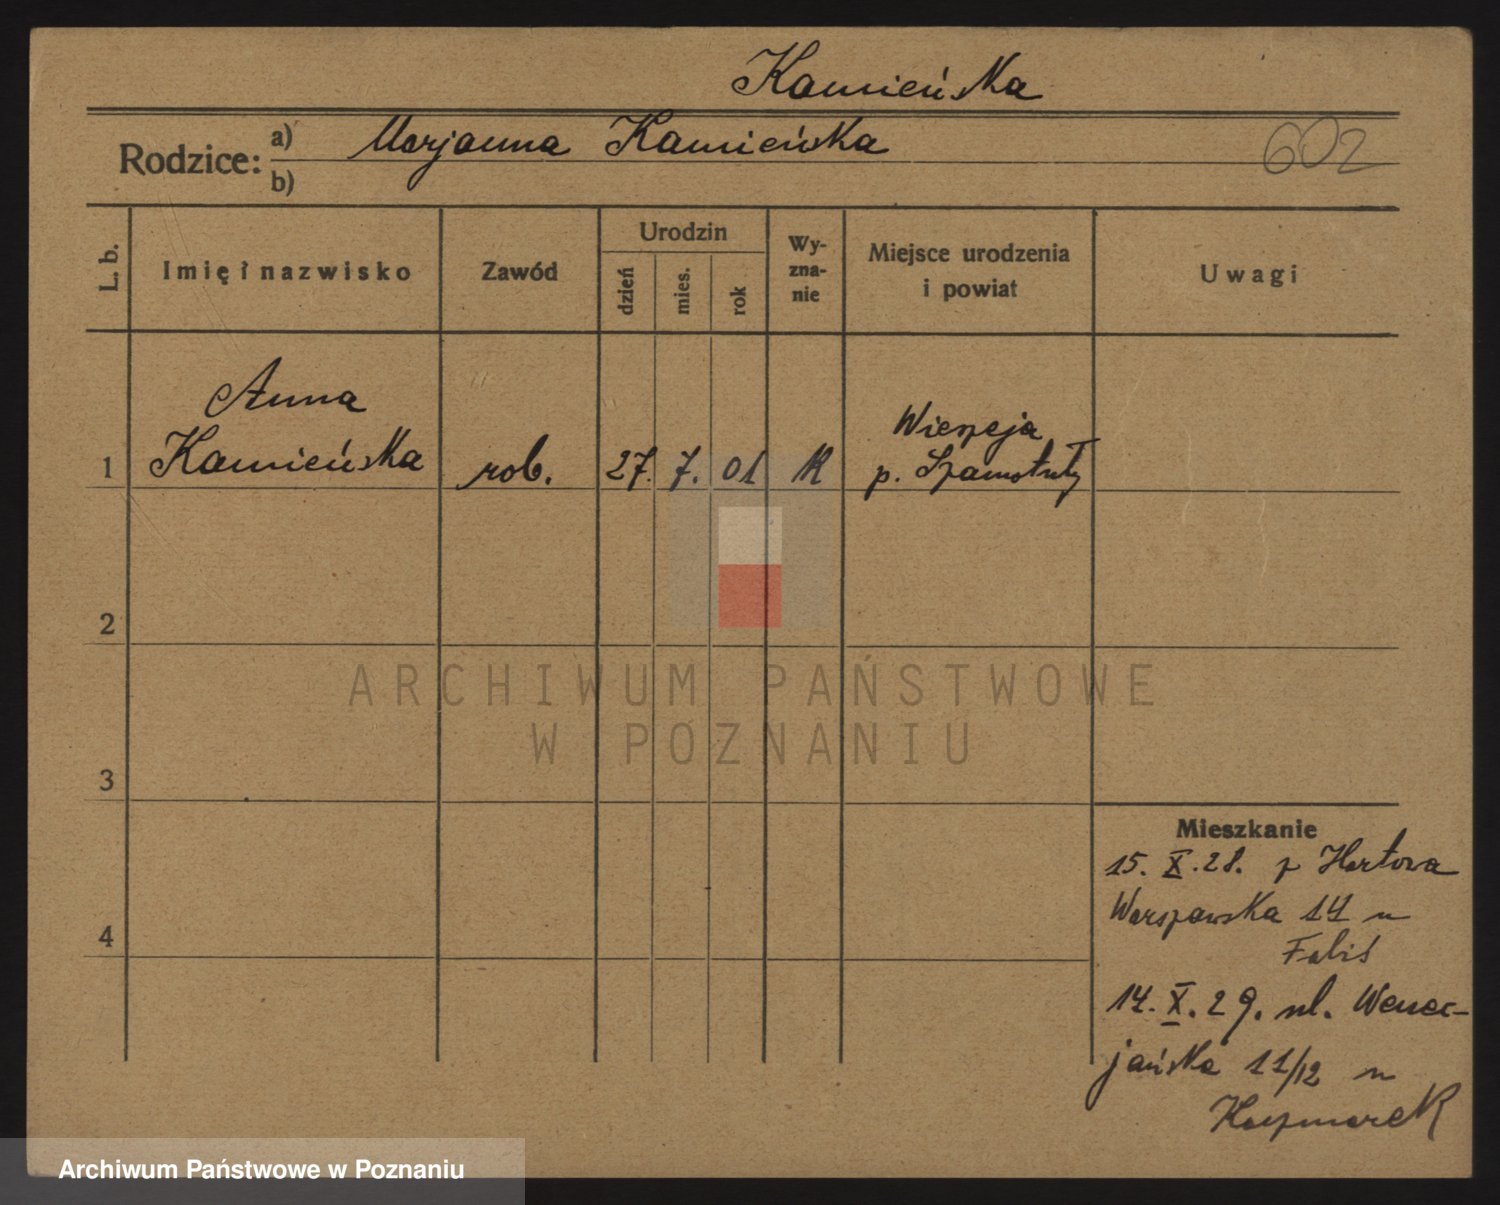 Kamieńska
Rodzice:
a) Marjanna Kamieńska
b)
602
L. b.
Imię i nazwisko
Zawód
Urodzin
dzień
mies.
rok
Wy-
zna-
nie
Miejsce urodzenia
i powiat
Uwagi
1
Anna
Kamieńska
rob.
27. 7. 01
K
p. Szamotuły
2
3
4
Mieszkanie
15. X. 28. z
Warszawska 14 u
14. X. 29. ul. Wenec-
jańska 11/12 u
Kaczmarek
ARCHIWUM PAŃSTWOWE
W POZNANIU
Archiwum Państwowe w Poznaniu